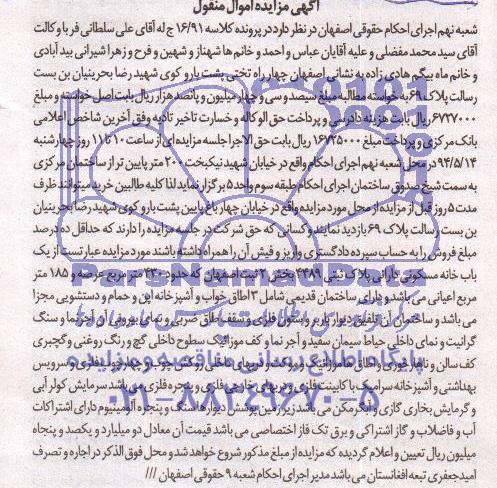 آگهی مزایده اموال منقول
شعبه نهم اجرای احکام حقوقی اصفهان در نظر دارد در پرونده کلاسه ۱۶/۹۱ ج له آقای علی سلطانی فر با وکالت
آقای سید محمد مفضلی و علیه آقایان عباس و احمد و خانم ها شهناز و شهین و فرح و زهرا شیرانی بید آبادی
و خانم ماه بیگم هادی زاده به نشانی اصفهان چهار راه تختی پشت بارو کوی شهید رضا بحرینیان بن بست
رسالت پلاک ۶۹ به خواسته مطالبه مبلغ سیصد و سی و چهار میلیون و پانصد هزار ریال بابت اصل خواسته و مبلغ
۶۷۲۷۰۰۰ ریال بابت هزینه دادرسی و پرداخت حق الوکاله و خسارت تاخیر تادیه وفق آخرین شاخص اعلامی
بانک مرکزی و پرداخت مبلغ ۱۶۷۲۵۰۰۰ ریال بابت حق الاجرا جلسه مزایده ای از ساعت ۱۰ تا ۱۱ روز چهارشنبه
۹۴/۵/۱۴ در محل شعبه نهم اجرای احکام واقع در خیابان شهید نیکبخت ۲۰۰ متر پایین تر از ساختمان مرکزی
به سمت شیخ صدوق ساختمان اجرای احکام طبقه سوم واحد ۵ برگزار نماید لذا کلیه طالبین خرید میتوانند ظرف
مدت ۵ روز قبل از مزایده از محل مورد مزایده واقع در خیابان چهار باغ پایین پشت بارو کوی شهید رضا بحرینیان
بن بست رسالت پلاک ۶۹ بازدید نمایند و کسانی که حق شرکت در جلسه مزایده را دارند که حداقل ده درصد
مبلغ فروش را به حساب سپرده دادگستری واریز و فیش آن را همراه داشته باشند مورد مزایده عبارتست از یک
باب خانه مسکونی دارای پلاک ثبتی ۴۴۸۹ بخش ۲ ثبت اصفهان که حدود ۴۳۰ متر مربع عرصه و ۱۸۵ متر
مربع اعیانی می باشد و دارای ساختمان قدیمی شامل ۳ اطاق خواب و آشپزخانه اپن و حمام و دستشویی مجزا
می باشد و ساختمان آن تلفیق دیوار باربر و ستون فلزی و سقف طاق ضربی و نمای بیرونی آن آجرنما و سنگ
گرانیت و نمای داخلی حیاط سیمان سفید و آجر نما و کف موزائیک سطوح داخلی گچ و رنگ روغنی و گچبری
کف سالن و
بهداشتی و آشپزخانه سرامیک با کابینت فلزی و دربهای خارجی فلزی و پنجره فلزی می باشد سرمایش کولر آبی
و گرمایش بخاری گازی و آبگرمکن می باشد زیرزمین پوشش دیوارها سنگ و پنجره آلومینیوم دارای اشتراکات
آب و فاضلاب و گاز اشتراکی و برق تک فاز اختصاصی می باشد قیمت آن معادل دو میلیارد و یکصد و پنجاه
میلیون ریال تعیین و اعلام گردیده که مزایده از مبلغ مذکور شروع خواهد شد و محل فوق الذکر در اجاره و تصرف
امید جعفری تبعه افغانستان می باشد مدیر اجرای احکام شعبه ۹ حقوقی اصفهان ///
پایگاه اطلاع رسانی مناقصه و مزایده
۰۲۱-۸۸۳۴۹۶۷۰-۵